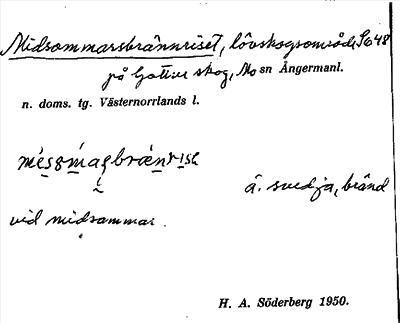 Midsommarsbrännriset, lövskogsområde, S648
på Gottne skog, Mo sn Ångermanl.
n. doms. tg. Västernorrlands l.
å. svedja, bränd
vid midsommar.
H. A. Söderberg 1950.